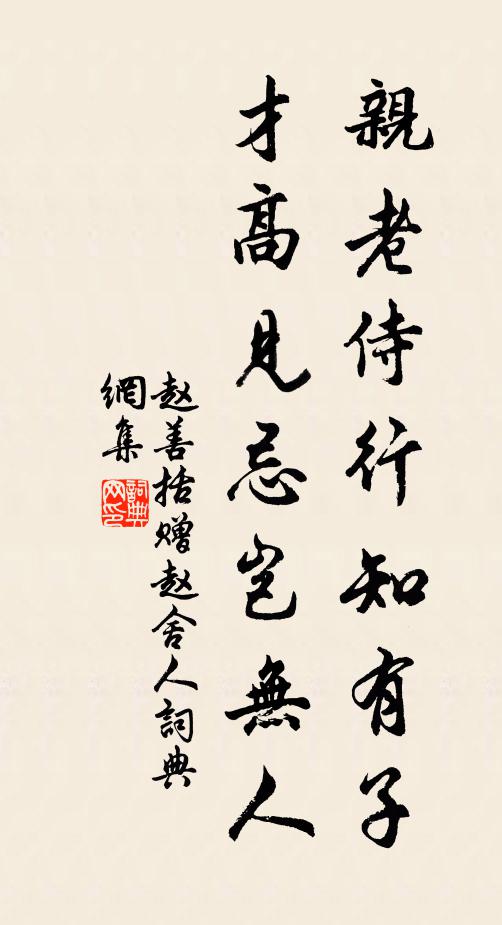 親老侍行知有子
才高見忌豈無人
赵善括赠赵舍人詞典
網集
詞典
网印